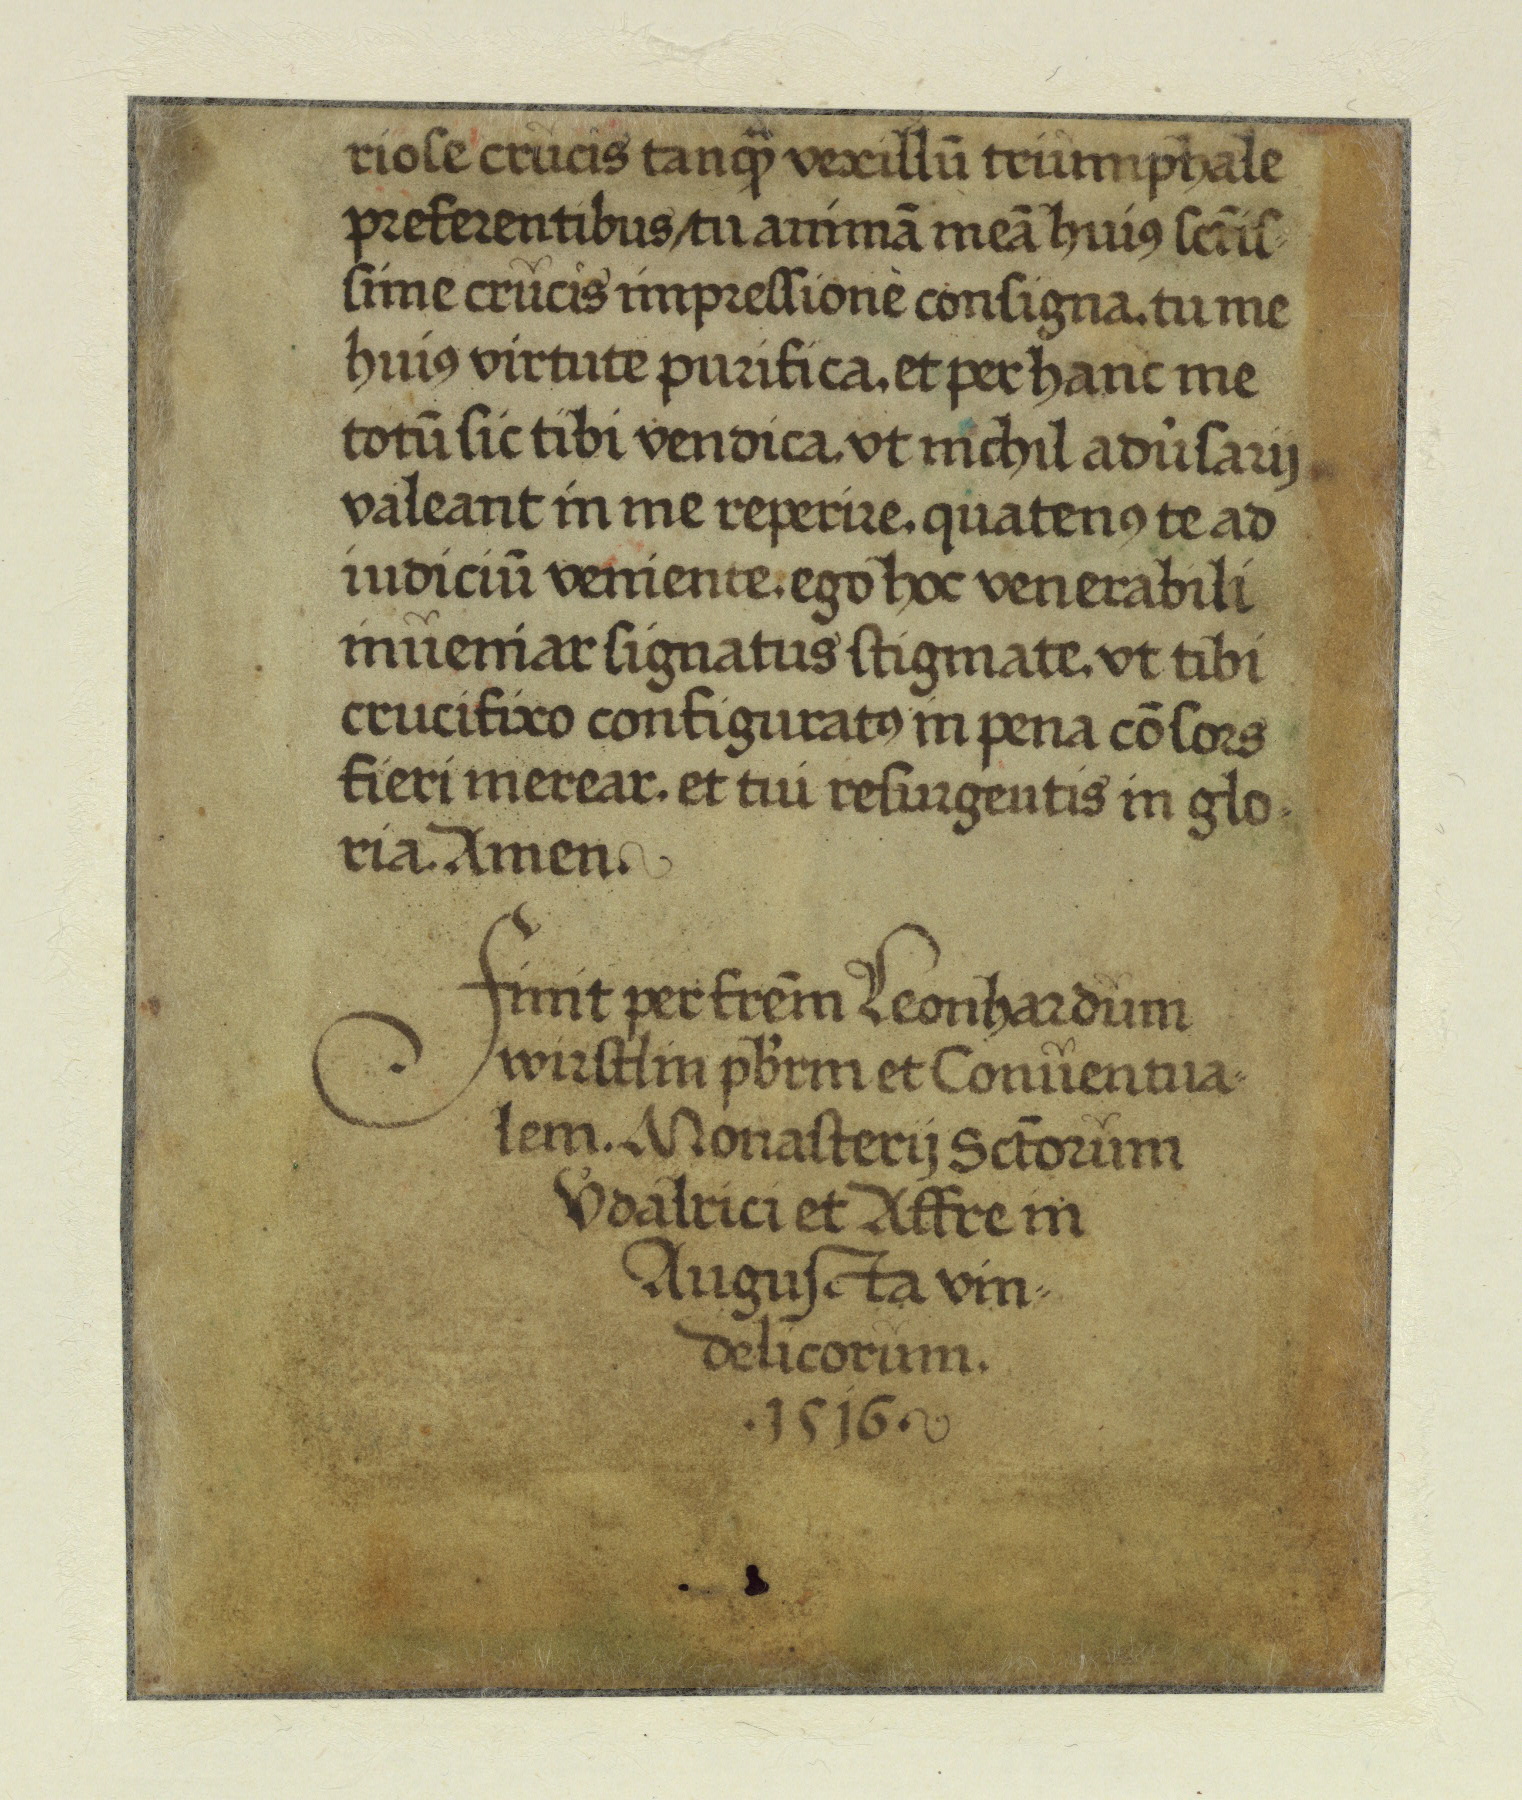 riose crucis tanqȝ vexillū triumphale
preferentibus/tu animā meā huiꝰ sctīs-
sime crucis impressione consigna. tu me
huiꝰ virtute purifica. et per hanc me
totū sic tibi vendica. vt nichil adu'sarij
valeant in me reperire. quatenꝰ te ad
iudiciū veniente. ego hoc venerabili
inueniar signatus stigmate. vt tibi
crucifixo configuratꝰ in pena cōsors
fieri merear. et tui resurgentis in glo-
ria. Amen.
Finit per frēm Leonhardum
wirstlin pb'rm et Conuentua-
lem. Monasterij Sctōrum
Vͦdalrici et Affre in
Augusta vin-
delicorum.
.1516.